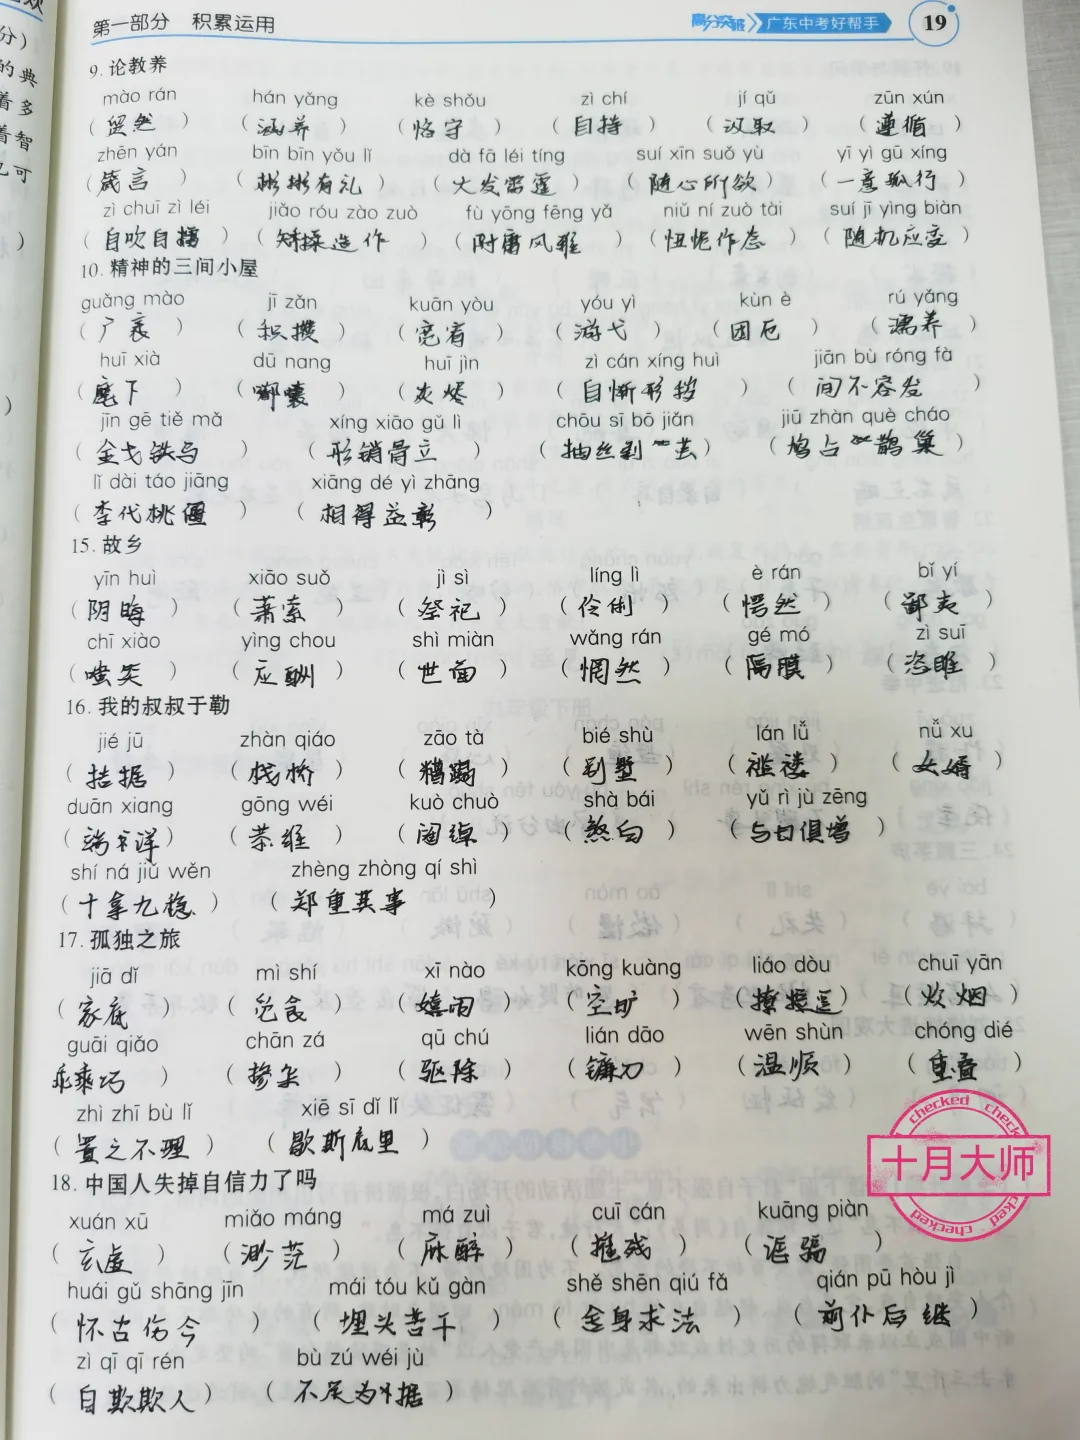 第一部分 积累运用 高分突破 广东中考好帮手 19
9. 论教养
mào rán hán yǎng kè shǒu zì chí jí qǔ zūn xún
(贸然) (涵养) (恪守) (自持) (汲取) (遵循)
zhēn yán bīn bīn yǒu lǐ dà fā léi tíng suí xīn suǒ yù yī yì gū xíng
(箴言) (彬彬有礼) (大发雷霆) (随心所欲) (一意孤行)
zì chuī zì léi jiǎo róu zào zuò fù yōng fēng yǎ niǔ ní zuò tài suí jī yìng biàn
(自吹自擂) (矫揉造作) (附庸风雅) (忸怩作态) (随机应变)
10. 精神的三间小屋
guǎng mào jī zǎn kuān yòu yóu yì kùn è rú yǎng
(广袤) (积攒) (宽宥) (游弋) (困厄) (濡养)
huī xià dū nang huī jìn zì cán xíng huì jiān bù róng fà
(麾下) (嘟囔) (灰烬) (自惭形秽) (间不容发)
jīn gē tiě mǎ xíng xiāo gǔ lì chōu sī bō jiǎn jiū zhàn què cháo
(金戈铁马) (形销骨立) (抽丝剥茧) (鸠占鹊巢)
lǐ dài táo jiāng xiāng dé yì zhāng
(李代桃僵) (相得益彰)
15. 故乡
yīn huì xiāo suǒ jì sì líng lì è rán bǐ yí
(阴晦) (萧索) (祭祀) (伶俐) (愕然) (鄙夷)
chī xiào yìng chou shì miàn wǎng rán gé mó zì suī
(嗤笑) (应酬) (世面) (惘然) (隔膜) (恣睢)
16. 我的叔叔于勒
jié jū zhàn qiáo zāo tà bié shù lán lǚ nǚ xu
(拮据) (栈桥) (糟蹋) (别墅) (褴褛) (女婿)
duān xiang gōng wéi kuò chuò shà bái yǔ rì jù zēng
(端详) (恭维) (阔绰) (煞白) (与日俱增)
shí ná jiǔ wěn zhèng zhòng qí shì
(十拿九稳) (郑重其事)
17. 孤独之旅
jiā dǐ mì shí xī nào kōng kuàng liáo dòu chuī yān
(家底) (觅食) (嬉闹) (空旷) (撩逗) (炊烟)
guāi qiǎo chān zá qū chú lián dāo wēn shùn chóng dié
乖巧) (掺杂) (驱除) (镰刀) (温顺) (重叠)
zhì zhī bù lǐ xiē sī dǐ lǐ
(置之不理) (歇斯底里)
18. 中国人失掉自信力了吗
xuán xū miǎo máng má zuì cuī cán kuāng piàn
(玄虚) (渺茫) (麻醉) (摧残) (诓骗)
huái gǔ shāng jīn mái tóu kǔ gàn shě shēn qiú fǎ qián pū hòu jì
(怀古伤今) (埋头苦干) (舍身求法) (前仆后继)
zì qī qī rén bù zú wéi jù
(自欺欺人) (不足为据)
checked checked
十月大师
checked checked